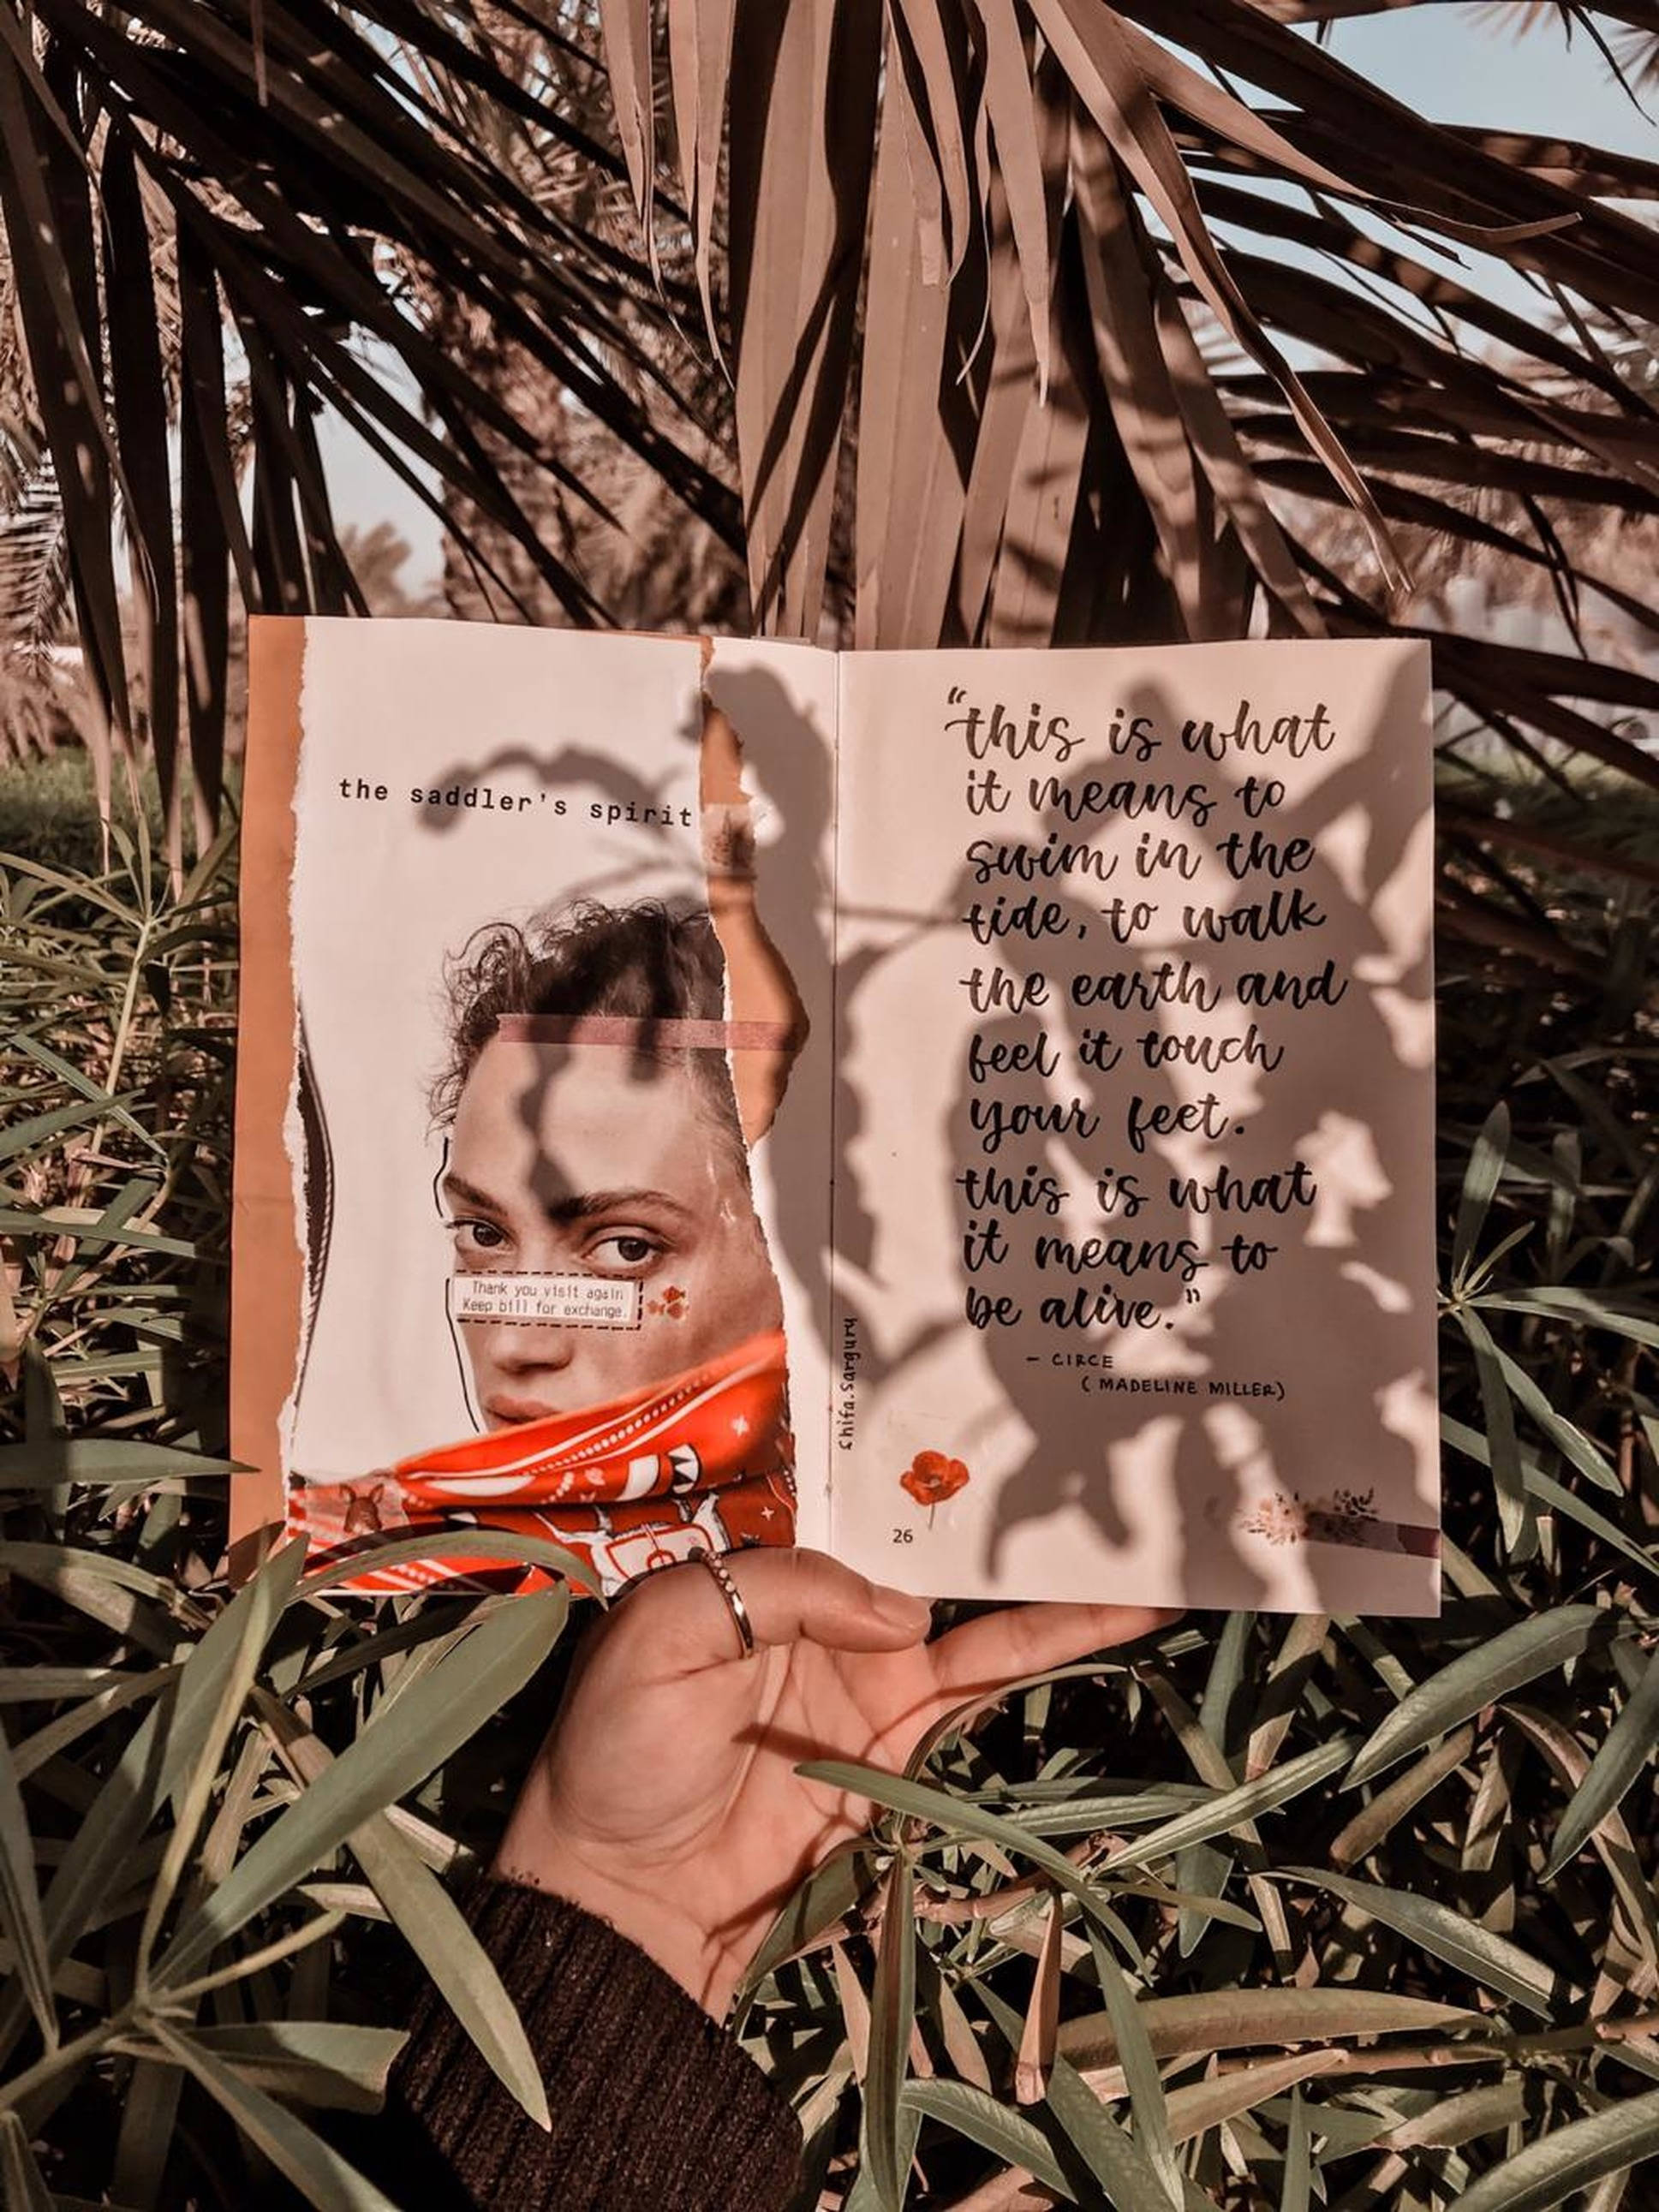 the saddler's spirit
Thank you visit again
Keep bill for exchange.
"this is what
it means to
swim in the
tide, to walk
the earth and
feel it touch
your feet.
this is what
it means to
be alive."
- CIRCE
( MADELINE MILLER)
shifa.sarguru
26